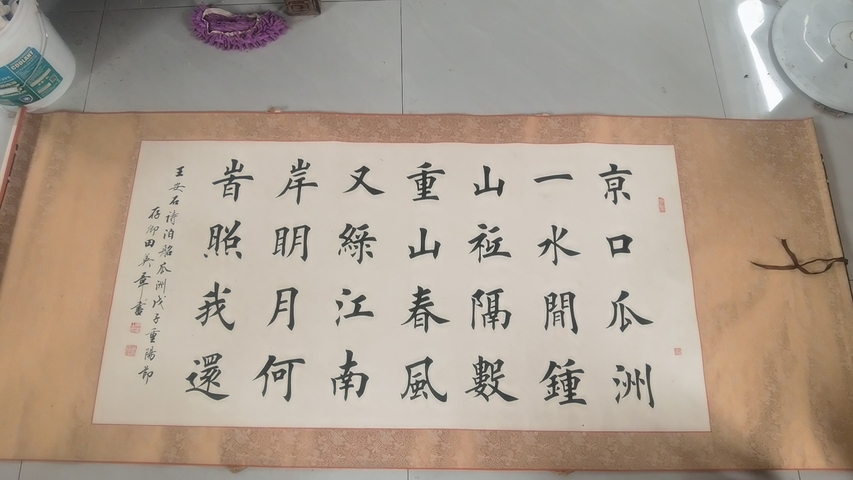 亰口瓜洲
一水間鍾
山祗隔數
重山春風
又綠江南
岸眀月何
旹照我還
王安石詩泊船瓜洲戊子重陽節
田英章書
COOLANT